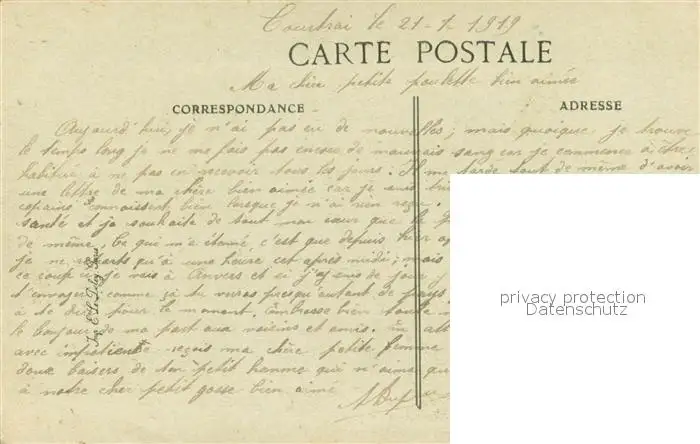 Courtrai le 21-1-1919
CARTE POSTALE
Ma chère petite poulette bien aimée
CORRESPONDANCE
ADRESSE
Aujourd'hui, je n'ai pas eu de nouvelles; mais quoique je trouve
le temps long je ne me fais pas encore de mauvais sang car je commence à être
habitué à ne pas en recevoir tous les jours. Il me tarde tout de même d'avoir
une lettre de ma chère bien aimée car je suis
copains connaissent bien lorsque je n'ai rien reçu.
santé et je souhaite de tout mon cœur que la
de même. Ce qui m'a étonné, c'est que depuis hier
je ne repartis qu'à une heure cet après midi; mais
ce coup ci je vais à Anvers et si j'ai de jour
t'envoyer comme çà tu verras presqu'autant de pays
à te dire pour le moment. Embrasse bien toute
le bonjour de ma part aux voisins et amis. En
avec impatience reçois ma chère petite femme
doux baisers de ton petit homme qui n'aime
à notre cher petit gosse bien aimé
privacy protection
Datenschutz